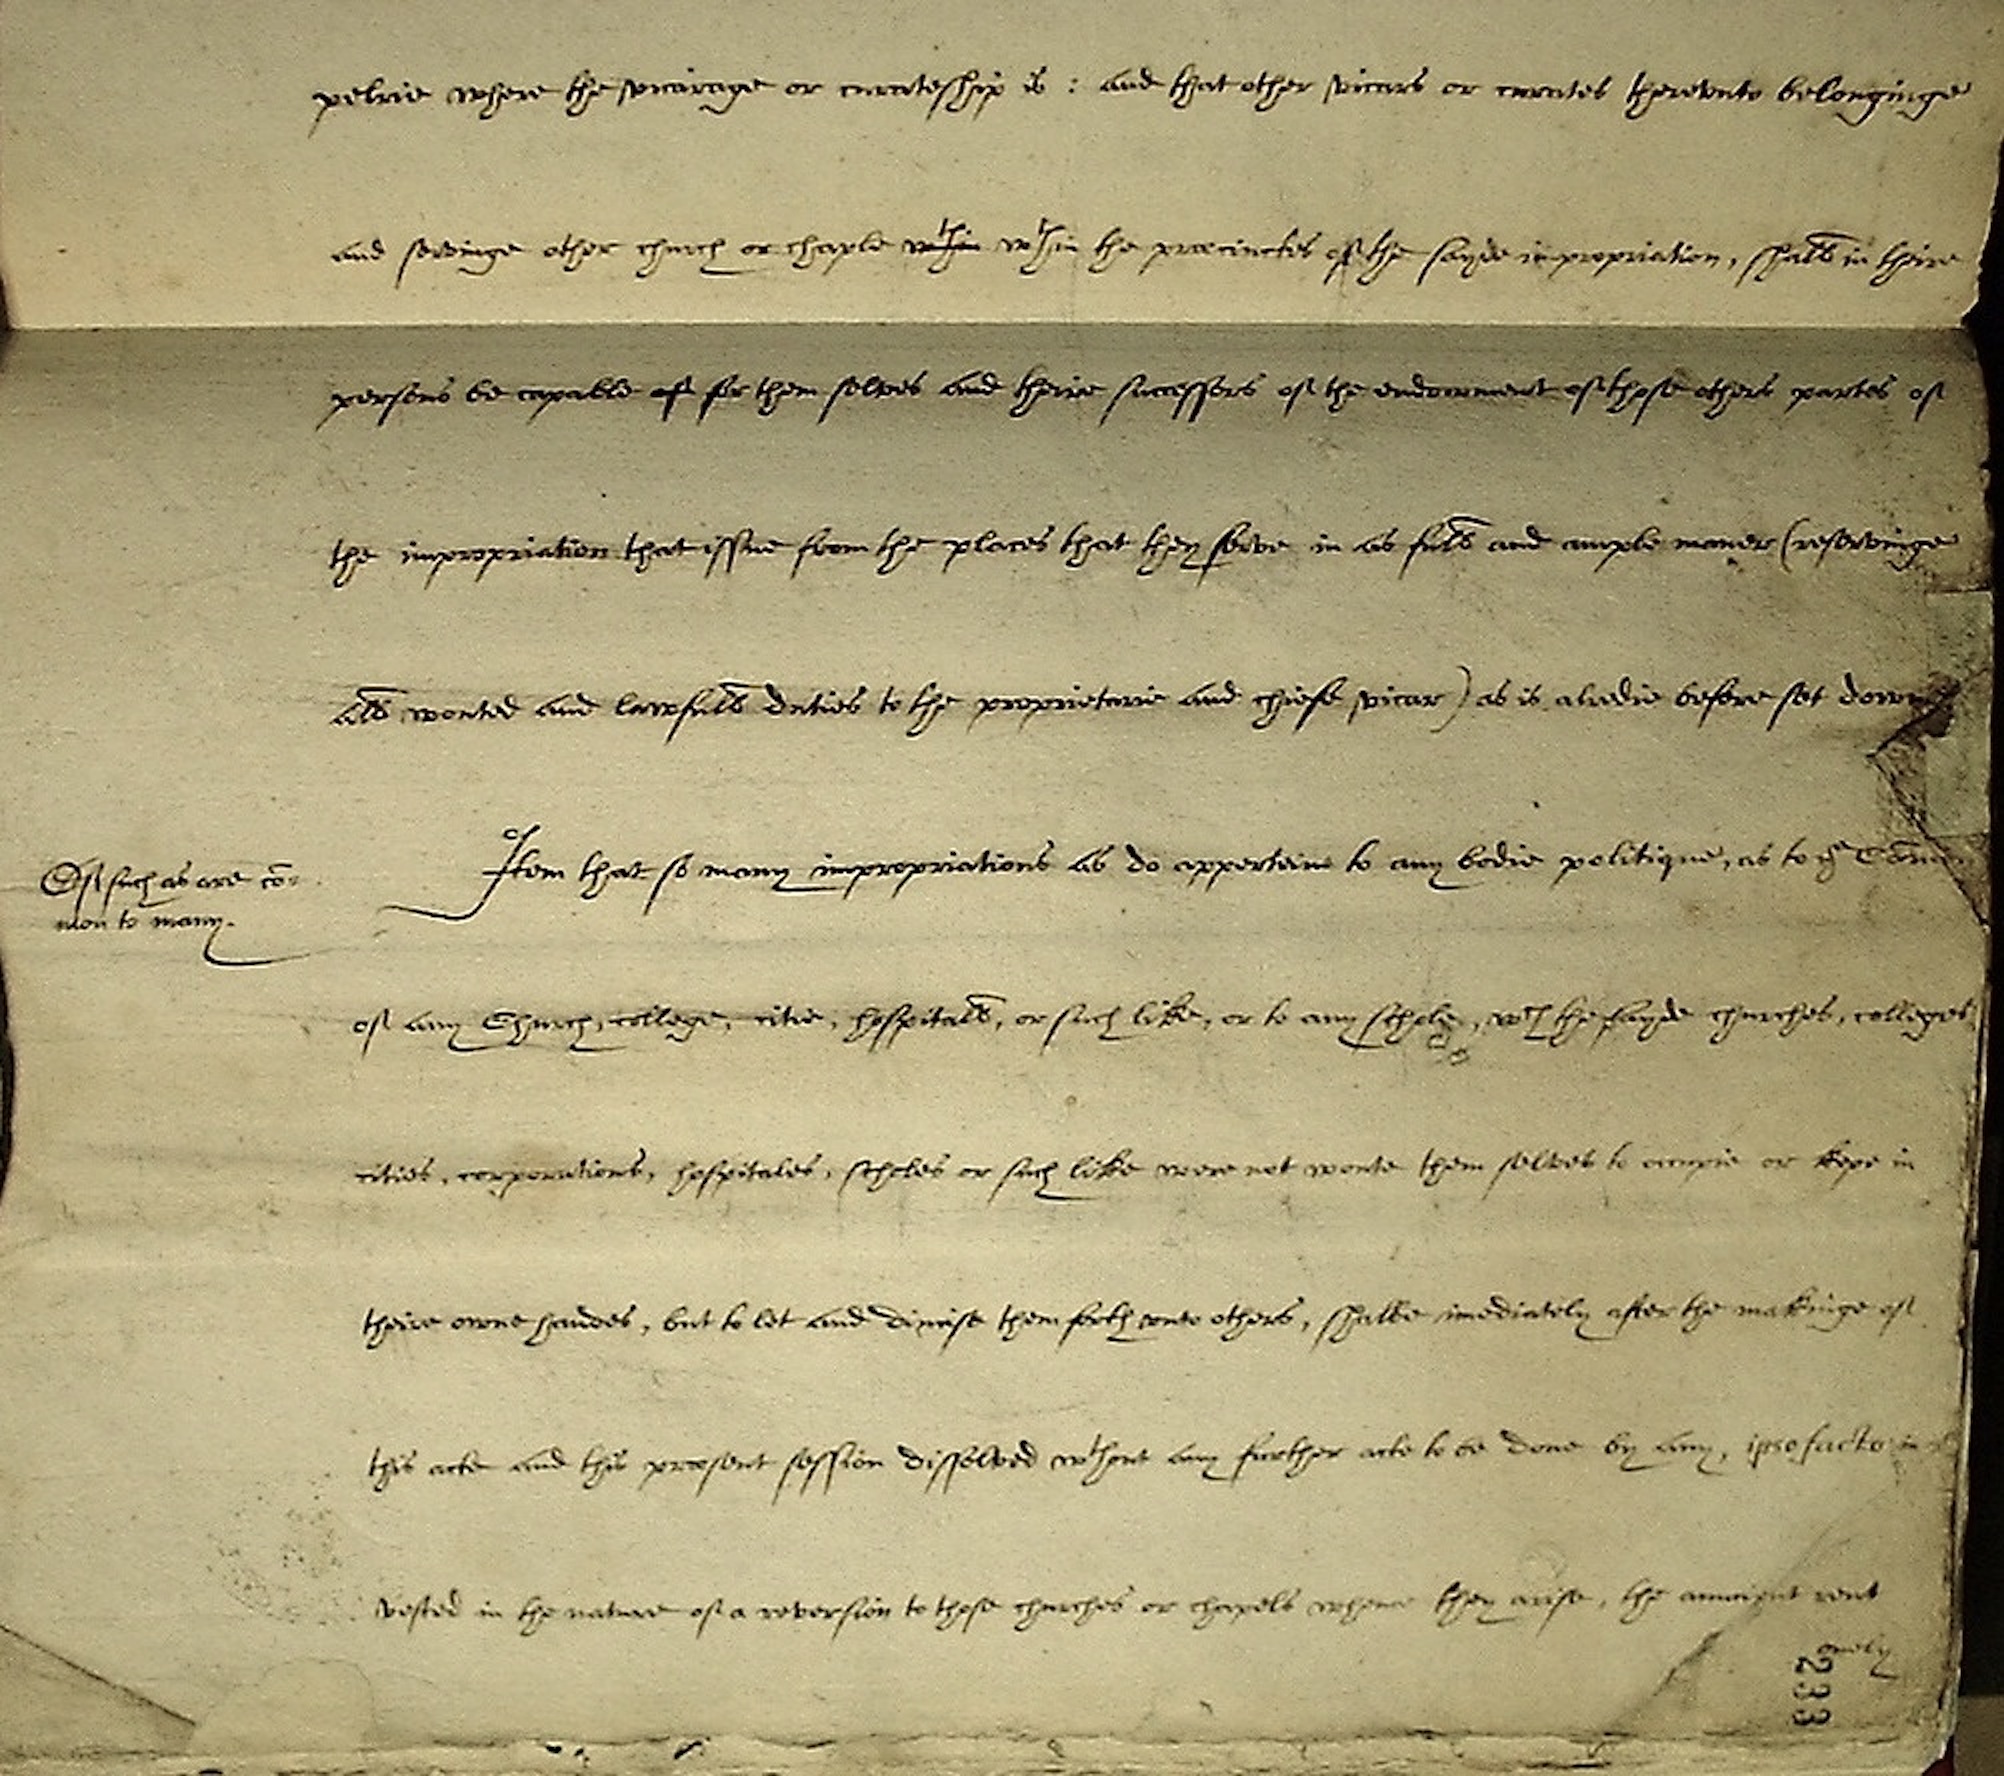 pelrie where the vicarage or curateship is : and that other vicars or curates therevnto belonginge
and servinge other church or chaple wthin wthin the præcinctes of the sayde impropriation, shall in theire
persons be capable of for them selves and theire successors of the endowment of those others partes of
the impropriation that issue from the places that they serve in as full and ample maner (reservinge
all wonted and lawfull duties to the proprietarie and chiefe vicar) as is alredie before set downe
Of such as are cō-
mon to many.
Item that so many impropriations as do apperteine to any bodie politique, as to ye Cōmon
of any Church, college, citie, hospitall, or such like, or to any schole, wch the sayde churches, colleges
cities, corporations, hospitales, scholes or such like were not wonte them selves to occupie or kepe in
theire owne handes, but to let and dimise them forth vnto others, shalbe imediately after the makinge of
this acte and this præsent session dissolved wthout any further acte to be done by any, ipso facto in
vested in the nature of a reversion to those churches or chapels whence they arise, the auncient rent
onely
233